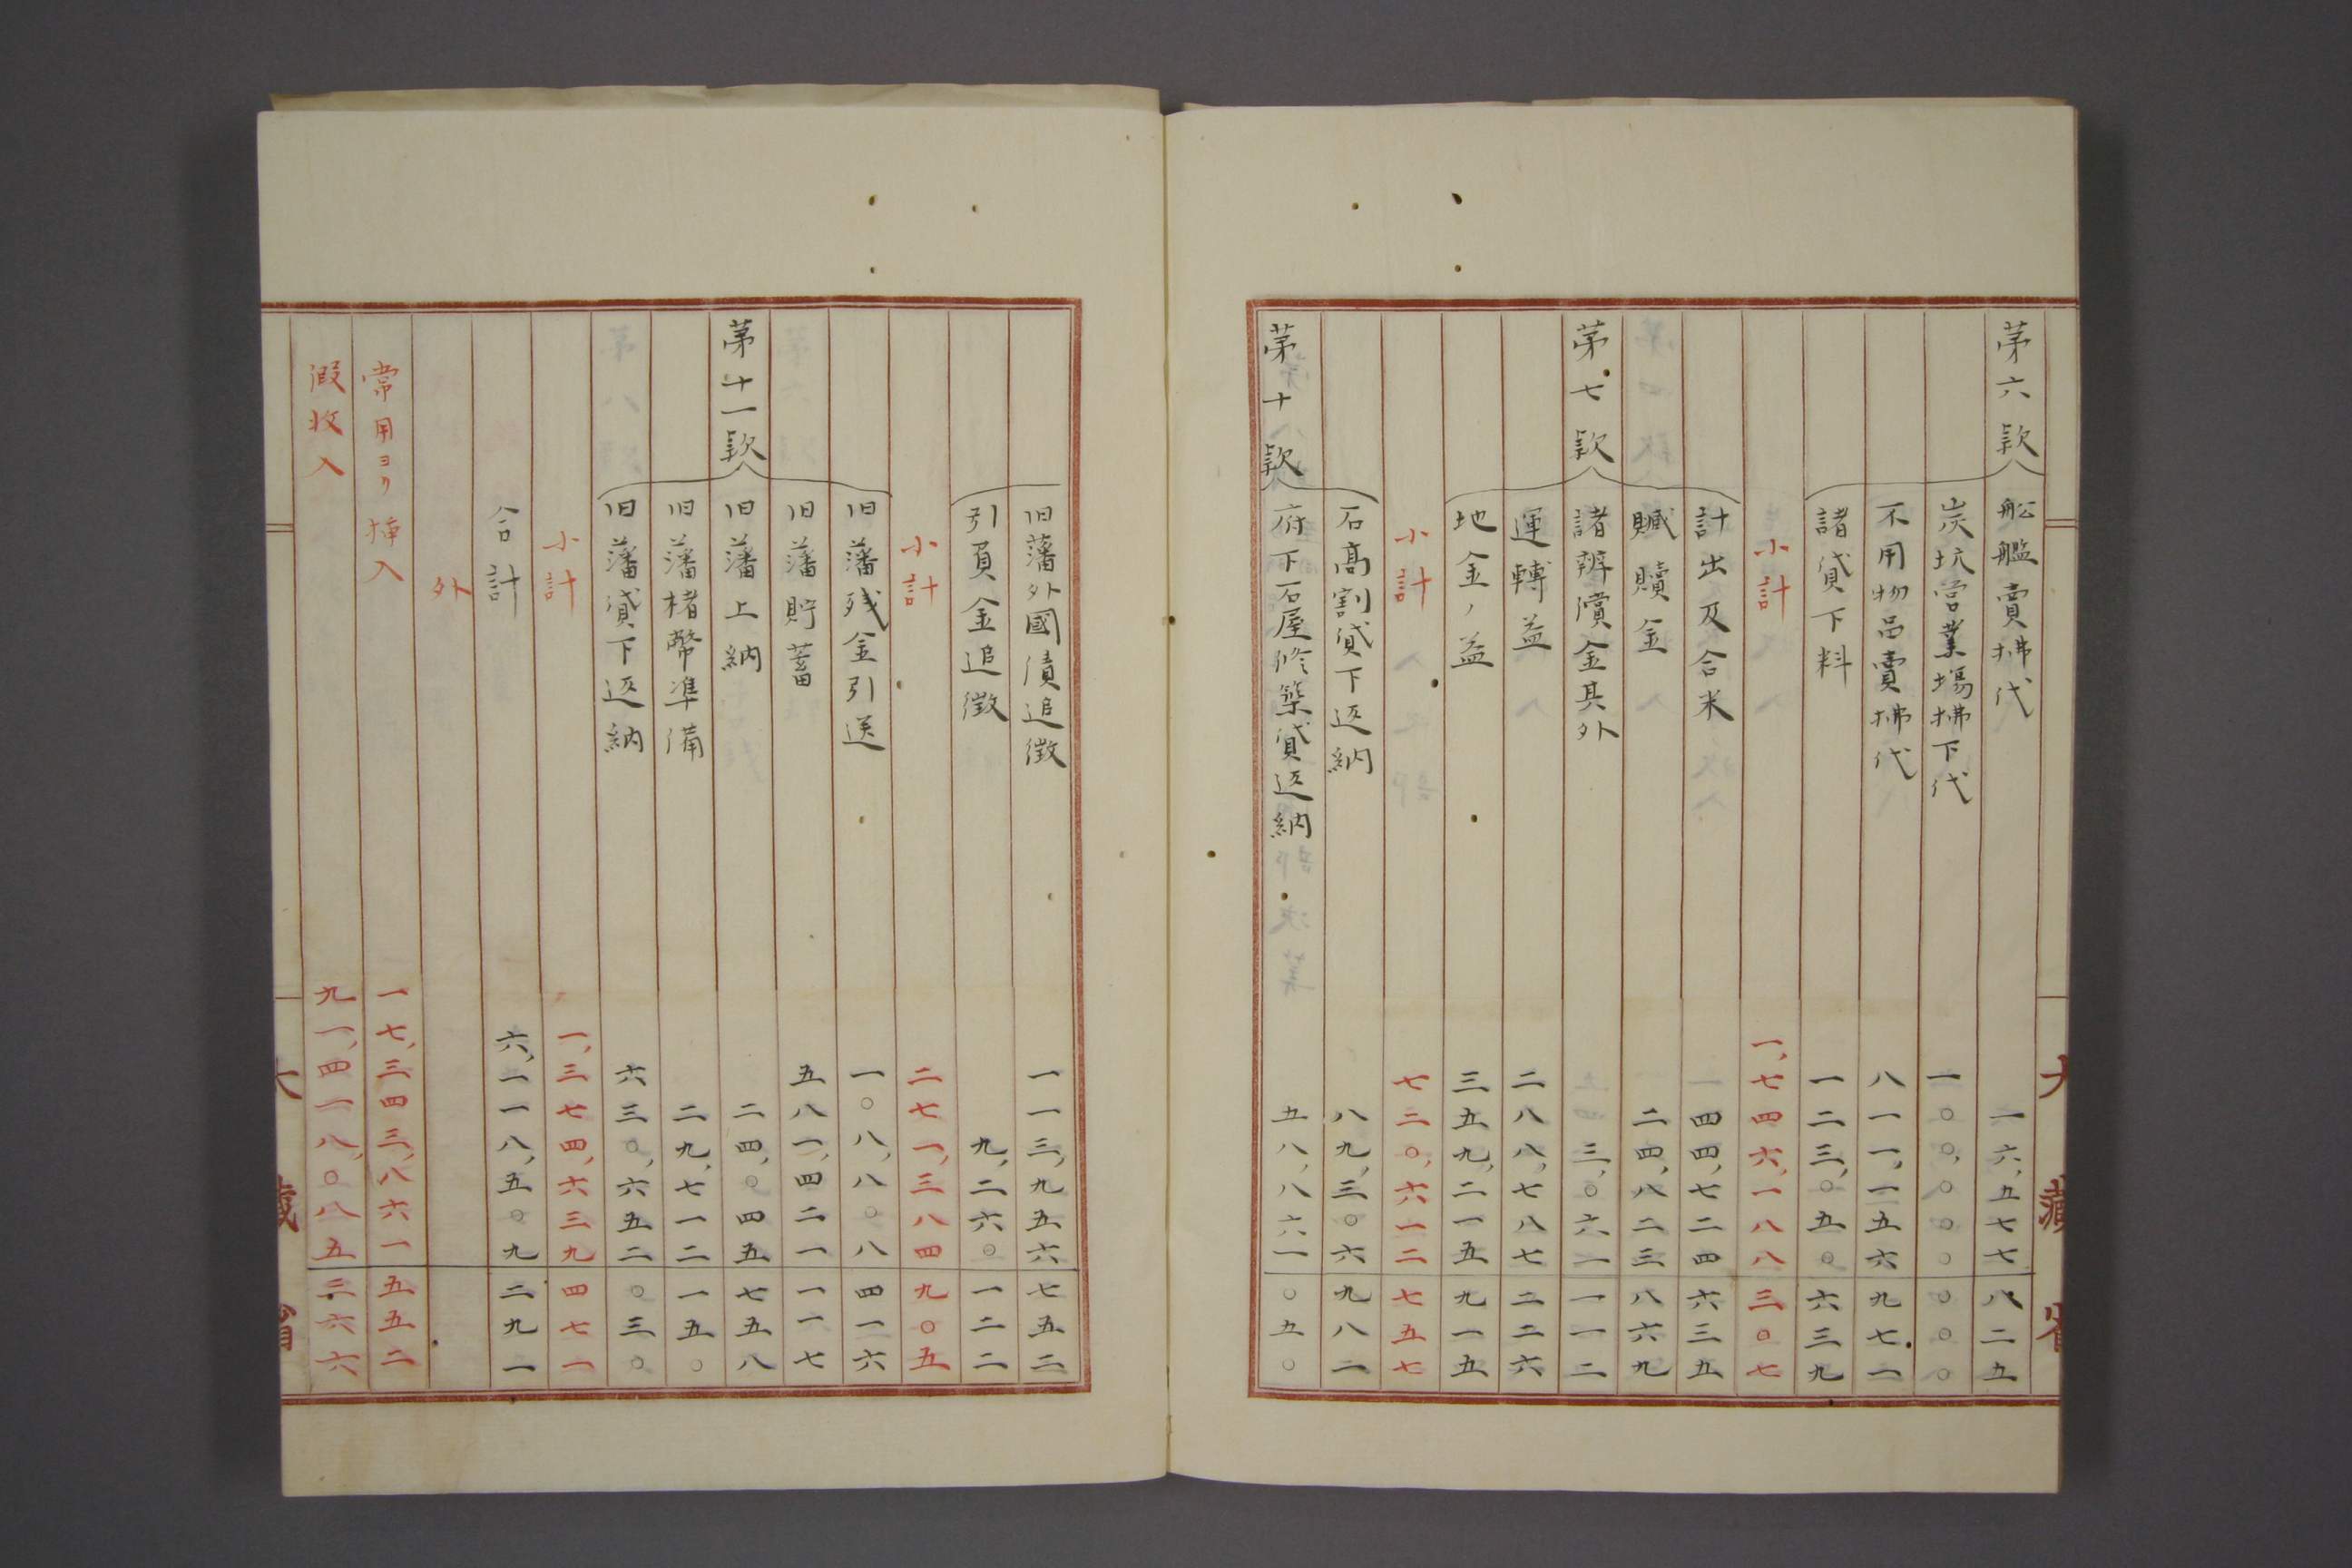 大藏省
第六款
船艦賣拂代 一六,五七七 八二五
炭坑営業場拂下代 一〇〇,〇〇〇 〇〇〇
不用物品賣拂代 八一一,一五六 九七一
諸貸下料 一二三,〇五〇 六三九
小計 一,七四六,一八八 三〇七
第七款
計出及合米 四四,七二四 六三五
贓贖金 二四,八二三 八六九
諸辨償金其外 三,〇六一 一一二
運轉益 二八八,七八七 二二六
地金ノ益 三五九,二一五 九一五
小計 七二〇,六一二 七五七
第十款
石高割貸下返納 八九,三〇六 九八一
府下石屋修築貸返納 五八,八六一 〇五〇
旧藩外國債追徴 一一三,九五六 七五二
引負金追徴 九,二六〇 一二二
小計 二七一,三八四 九〇五
第十一款
旧藩残金引送 一〇八,八〇八 四一六
旧藩貯蓄 五八一,四二一 一一七
旧藩上納 二四,〇四五 七五八
旧藩楮幣準備 二九,七一二 一五〇
旧藩貸下返納 六三〇,六五二 〇三〇
小計 一,三七四,六三九 四七一
合計 六,一一八,五〇九 二九一
外
常用ヨリ挿入 一七,三四三,八六一 五五二
假收入 九一,四一八,〇八五 三六六
大藏省